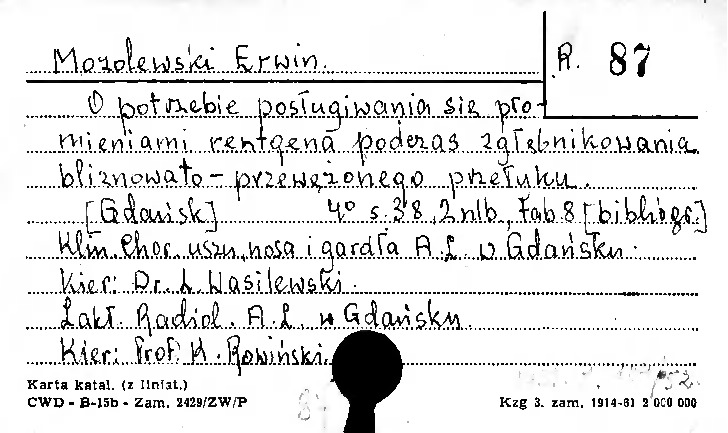 Mozolewski Erwin.
R. 87
O potrzebie posługiwania się pro-
mieniami rentgena podczas zgłębnikowania
bliznowato-przewężonego przełuku.
[Gdańsk] 4° s. 38, 2 nlb, tab 8 [bibliogr.]
Klin. Chor. uszu, nosa i gardła A.L. w Gdańsku.
Kier: Dr. L. Wasilewski.
Zakł. Radiol. A.L. w Gdańsku.
Kier: Prof. K. Rowiński.
Karta katal. (z liniat.)
CWD - B-15b - Zam. 2429/ZW/P
Kzg 3. zam. 1914-61 2 000 000